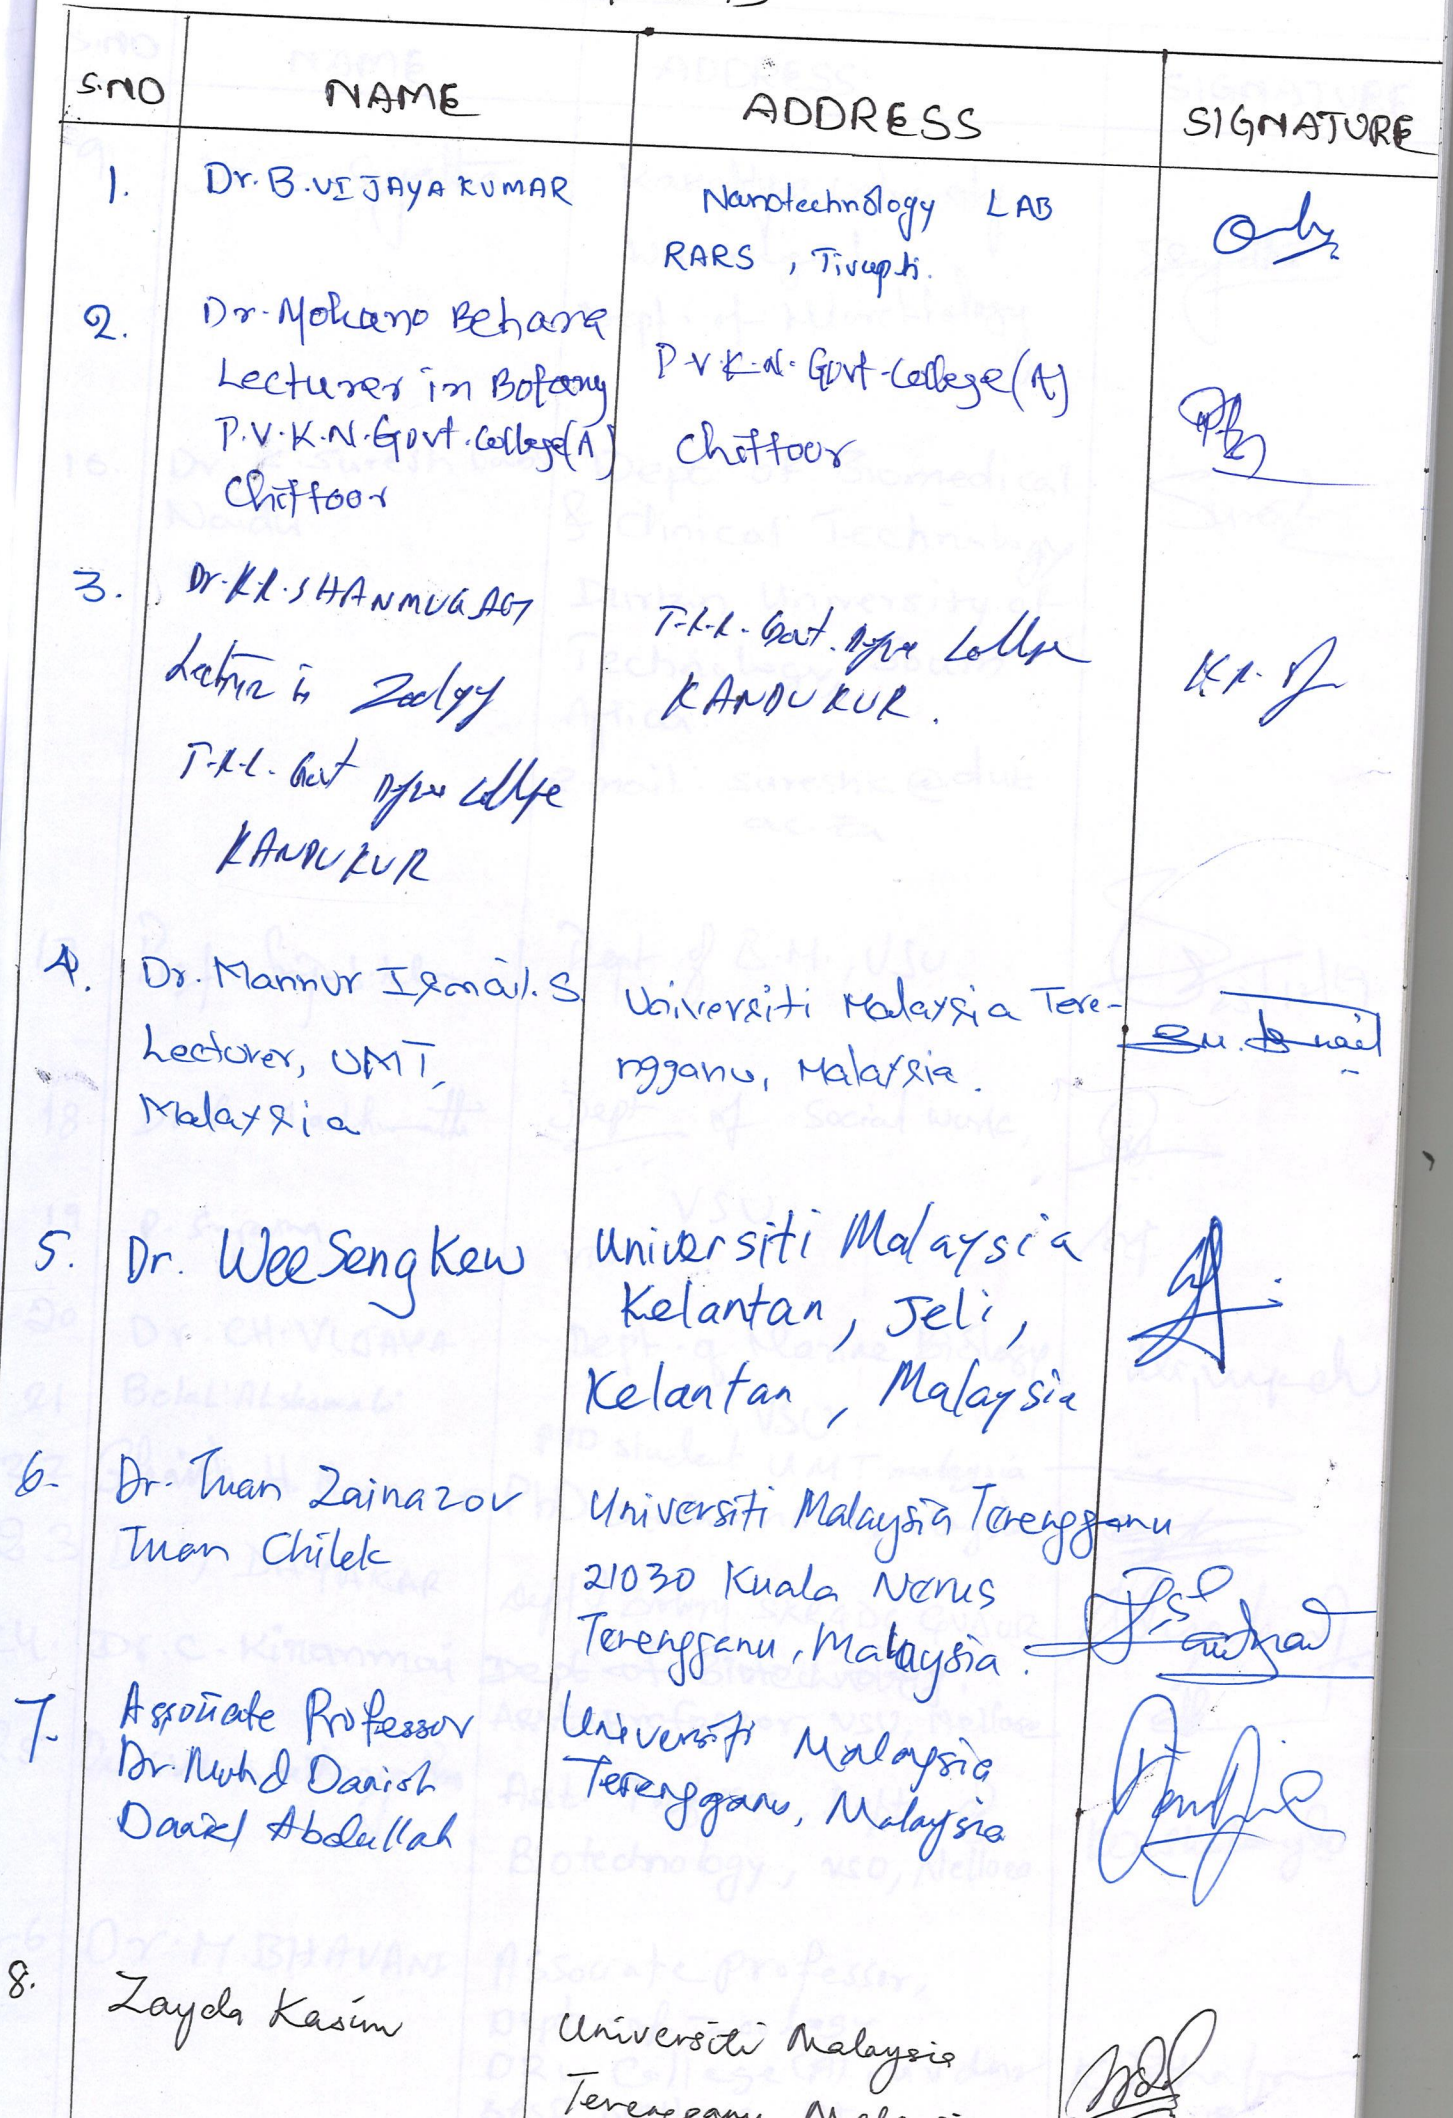 S.NO NAME ADDRESS SIGNATURE
1. Dr. B. VIJAYA KUMAR
Nanotechnology LAB
RARS, Tirupti.
2. Dr. Mohano Behara
Lecturer in Botany
P.V.K.N. Govt. College(A)
Chittoor
P.V.K.N. Govt. College(A)
Chittoor
3. Dr. K.R. SHANMUGAM
Lecturer in Zoology
T.R.R. Govt Degree College
KANDUKUR
T.R.R. Govt. Degree College
KANDUKUR.
4. Dr. Mannur Ismail. S
Lecturer, UMT,
Malaysia
Universiti Malaysia Tere-
ngganu, Malaysia.
5. Dr. Wee Seng Kew
Universiti Malaysia
Kelantan, Jeli,
Kelantan, Malaysia
6. Dr. Tuan Zainazor
Tuan Chilek
Universiti Malaysia Terengganu
21030 Kuala Nerus
Terengganu, Malaysia.
7. Associate Professor
Dr. Muhd Danish
Daniel Abdullah
Universiti Malaysia
Terengganu, Malaysia
8. Zayda Kasim
Universiti Malaysia
Terengganu Malaysia